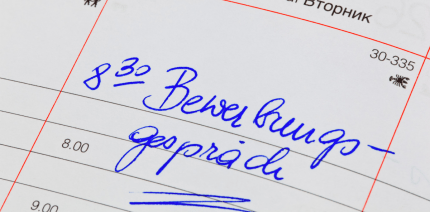 Вторник
30-335
8 30 Bewerbungs-
gespräch
8.00
9.00